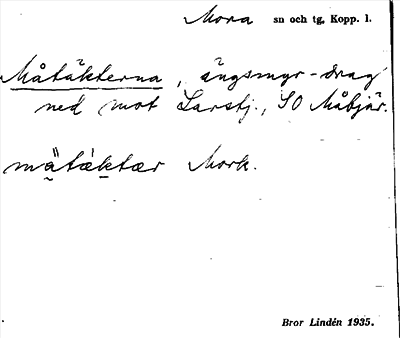 Mora sn och tg, Kopp. l.
Måtäkterna, ängsmyr-drag
ned mot Larstj., SO Måbjär.
mätäktær Mork.
Bror Lindén 1935.